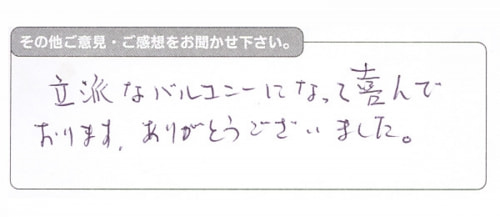 その他ご意見・ご感想をお聞かせ下さい。
立派なバルコニーになって喜んで
おります。ありがとうございました。